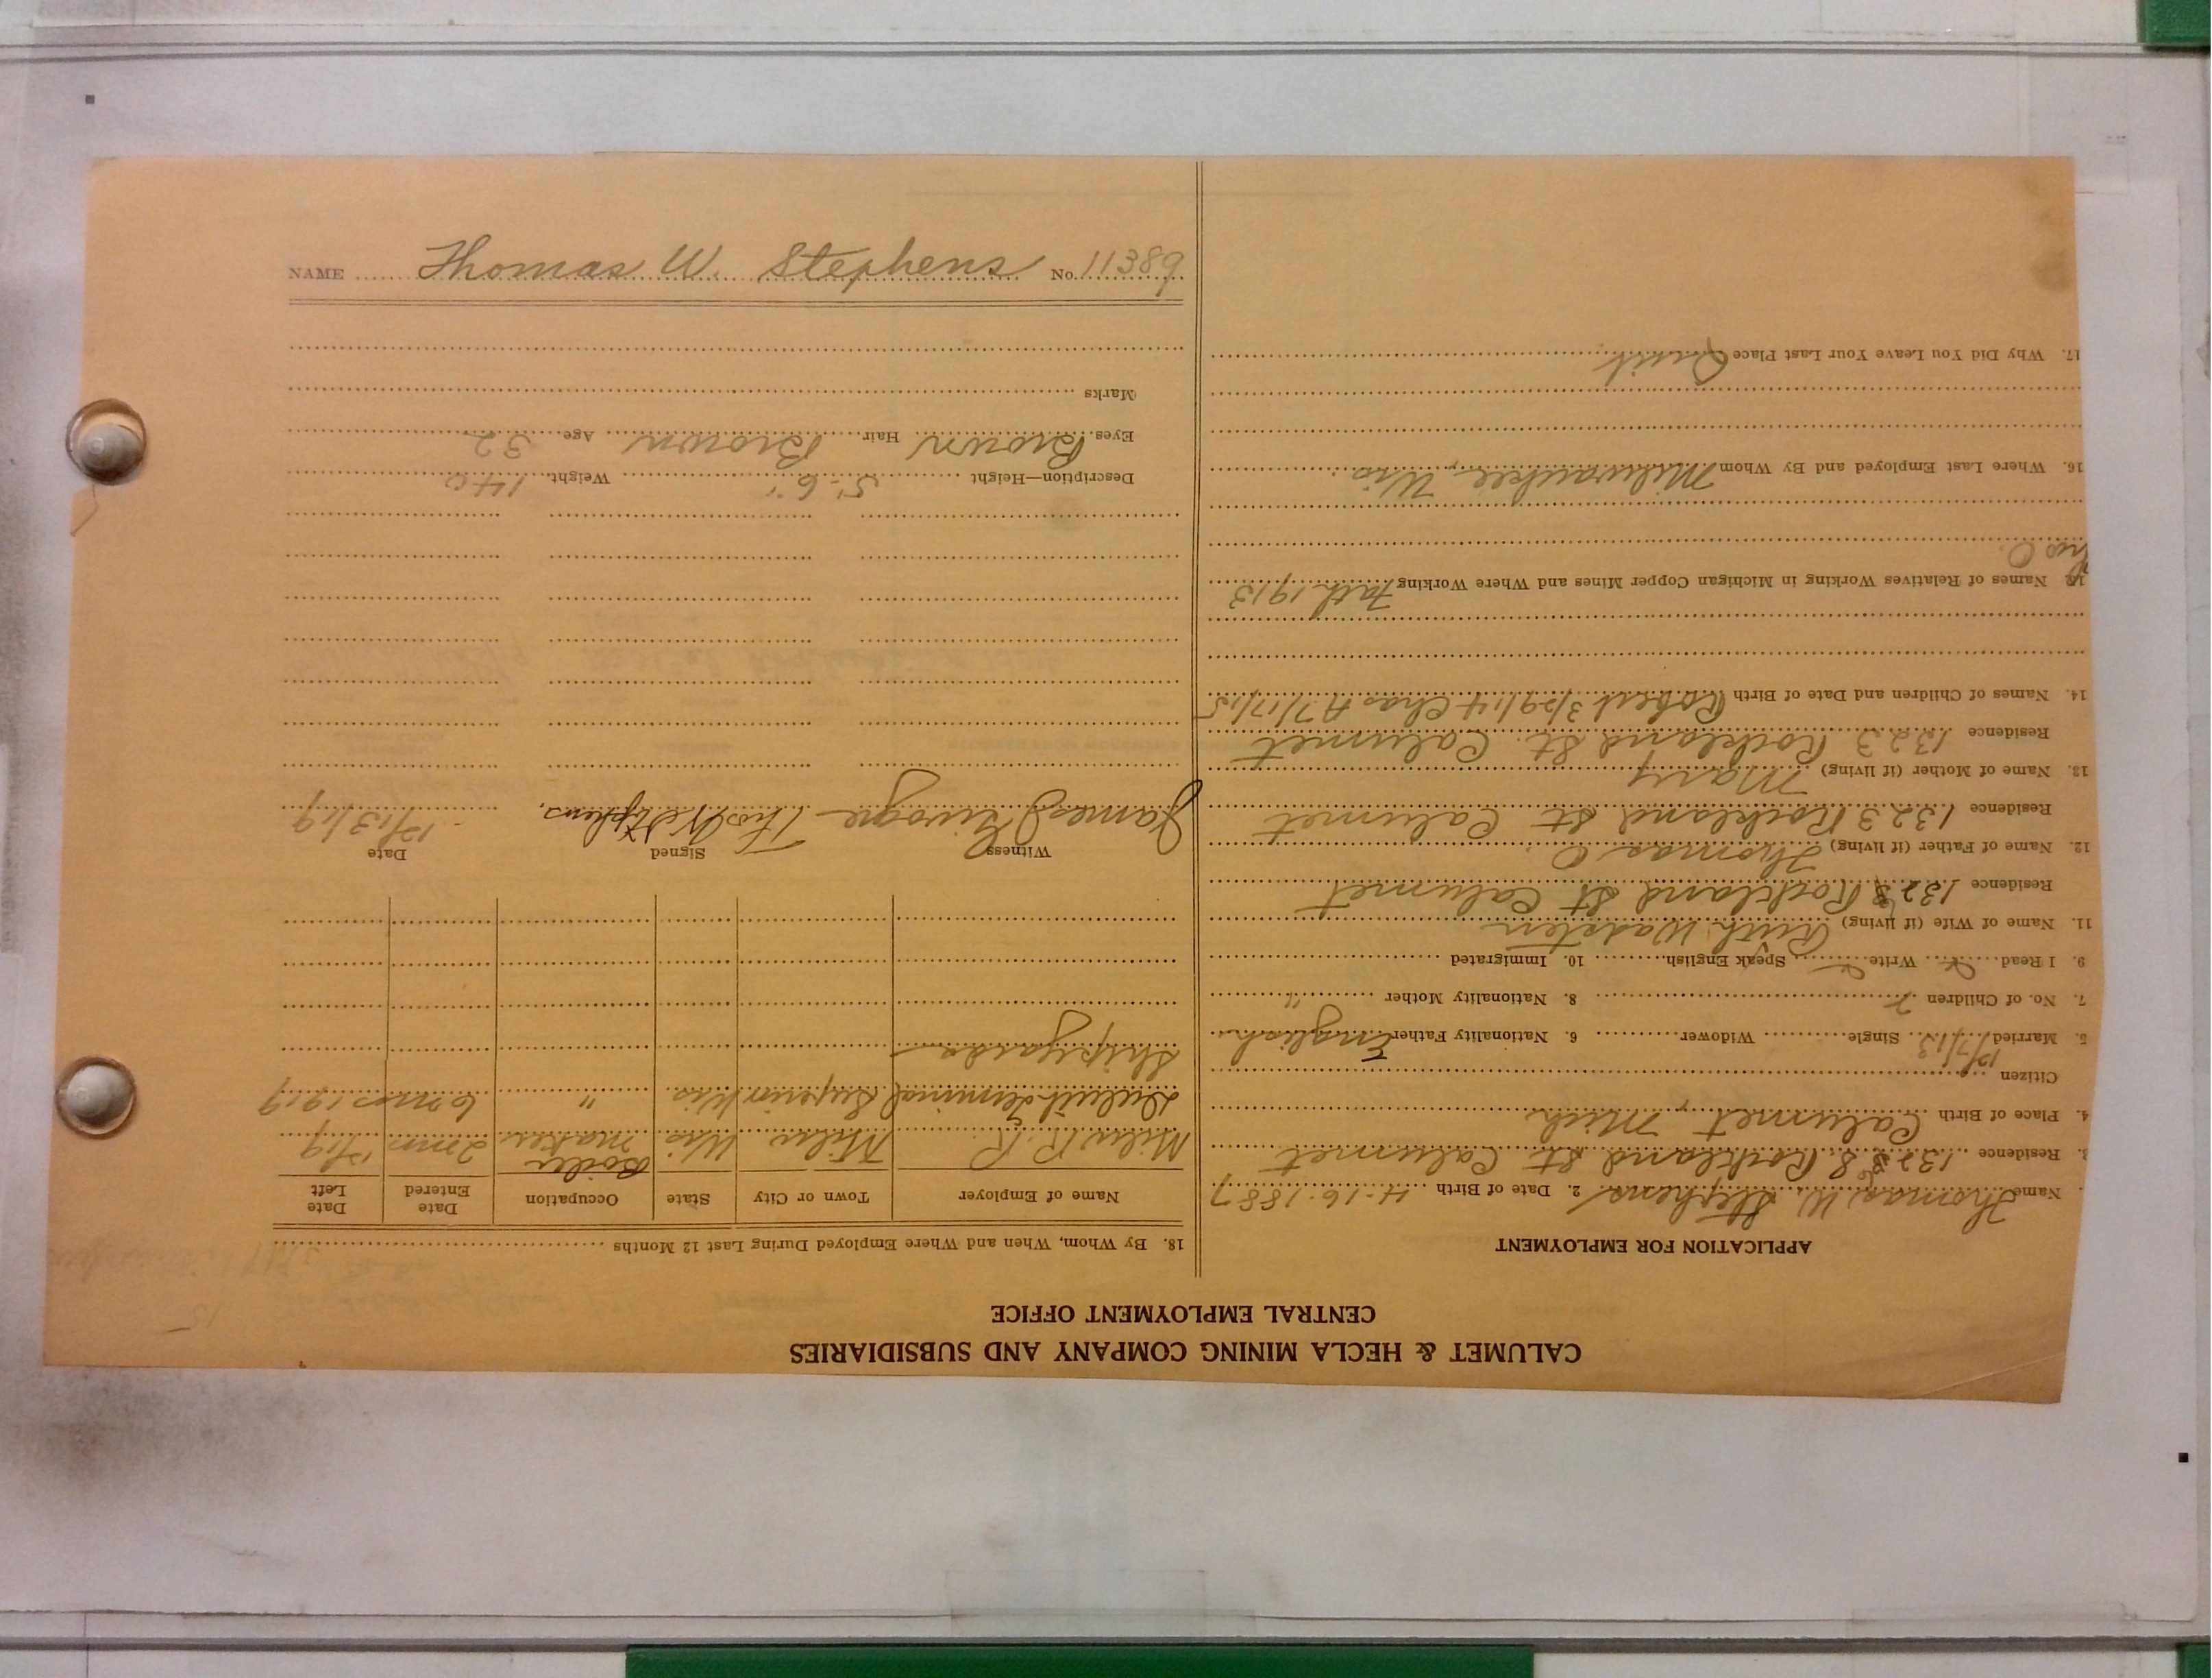 CALUMET & HECLA MINING COMPANY AND SUBSIDIARIES
CENTRAL EMPLOYMENT OFFICE
APPLICATION FOR EMPLOYMENT
Name Thomas W. Stephens 2. Date of Birth 4-16-1887
3. Residence Rockland St Calumet
4. Place of Birth Calumet, Mich
Citizen
5. Married 12/7/13 Single Widower 6. Nationality Father English
7. No. of Children 2 8. Nationality Mother "
9. I Read Write Speak English 10. Immigrated
11. Name of Wife (if living) Ruth Wadsten
Residence 1323 Rockland St Calumet
12. Name of Father (if living) Thomas O
Residence 1323 Rockland St. Calumet
13. Name of Mother (if living) Mary
Residence 1323 Rockland St. Calumet
14. Names of Children and Date of Birth Robert 3/29/14 Chas A 7/17/15
Names of Relatives Working in Michigan Copper Mines and Where Working Fath 1913
O.
16. Where Last Employed and By Whom Milwaukee, Wis.
17. Why Did You Leave Your Last Place Quit
18. By Whom, When and Where Employed During Last 12 Months
Name of Employer Town or City State Occupation Date Entered Date Left
Milw R. R. Milw Wis Boiler maker 2 mos 12/19
Duluth Terminal Superior Wis " 6 mos 1919
Shipyards
Witness Signed Date
James Thos W Stephens. 12/13/19
Description—Height 5'-6" Weight 140
Eyes Brown Hair Brown Age 32
Marks
NAME Thomas W. Stephens No. 11389